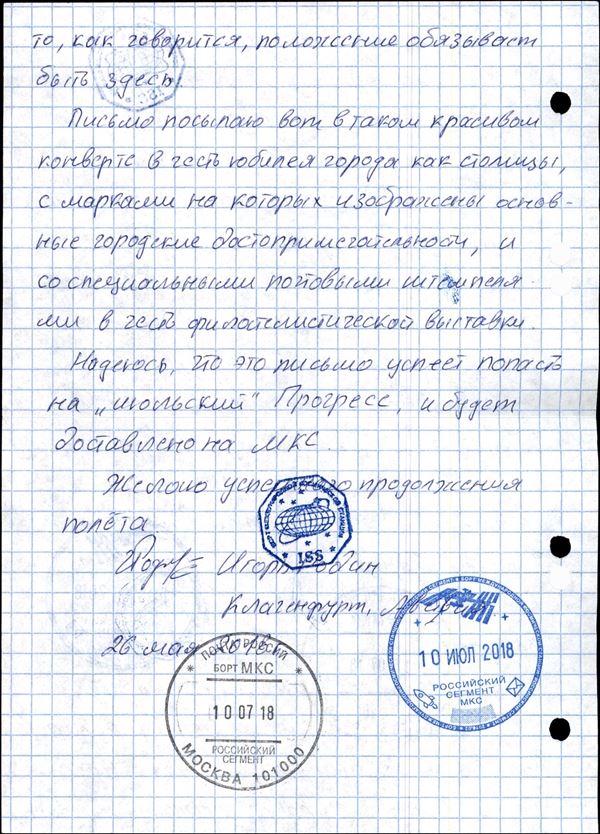 то, как говорится, положение обязывает
быть здесь.
Письмо посылаю вот в таком красивом
конверте в честь юбилея города как столицы,
с марками на которых изображены основ-
ные городские достопримечательности, и
со специальными почтовыми штемпеля-
ми в честь филателистической выставки.
Надеюсь, что это письмо успеет попасть
на „июльский" Прогресс, и будет
доставлено на МКС.
Желаю успешного продолжения
полёта
ISS
Игорь Родин
Клагенфурт, Австрия
26 мая 2018 г.
БОРТ МКС
10 07 18
РОССИЙСКИЙ
СЕГМЕНТ
МОСКВА 101000
10 ИЮЛ 2018
РОССИЙСКИЙ
СЕГМЕНТ
МКС